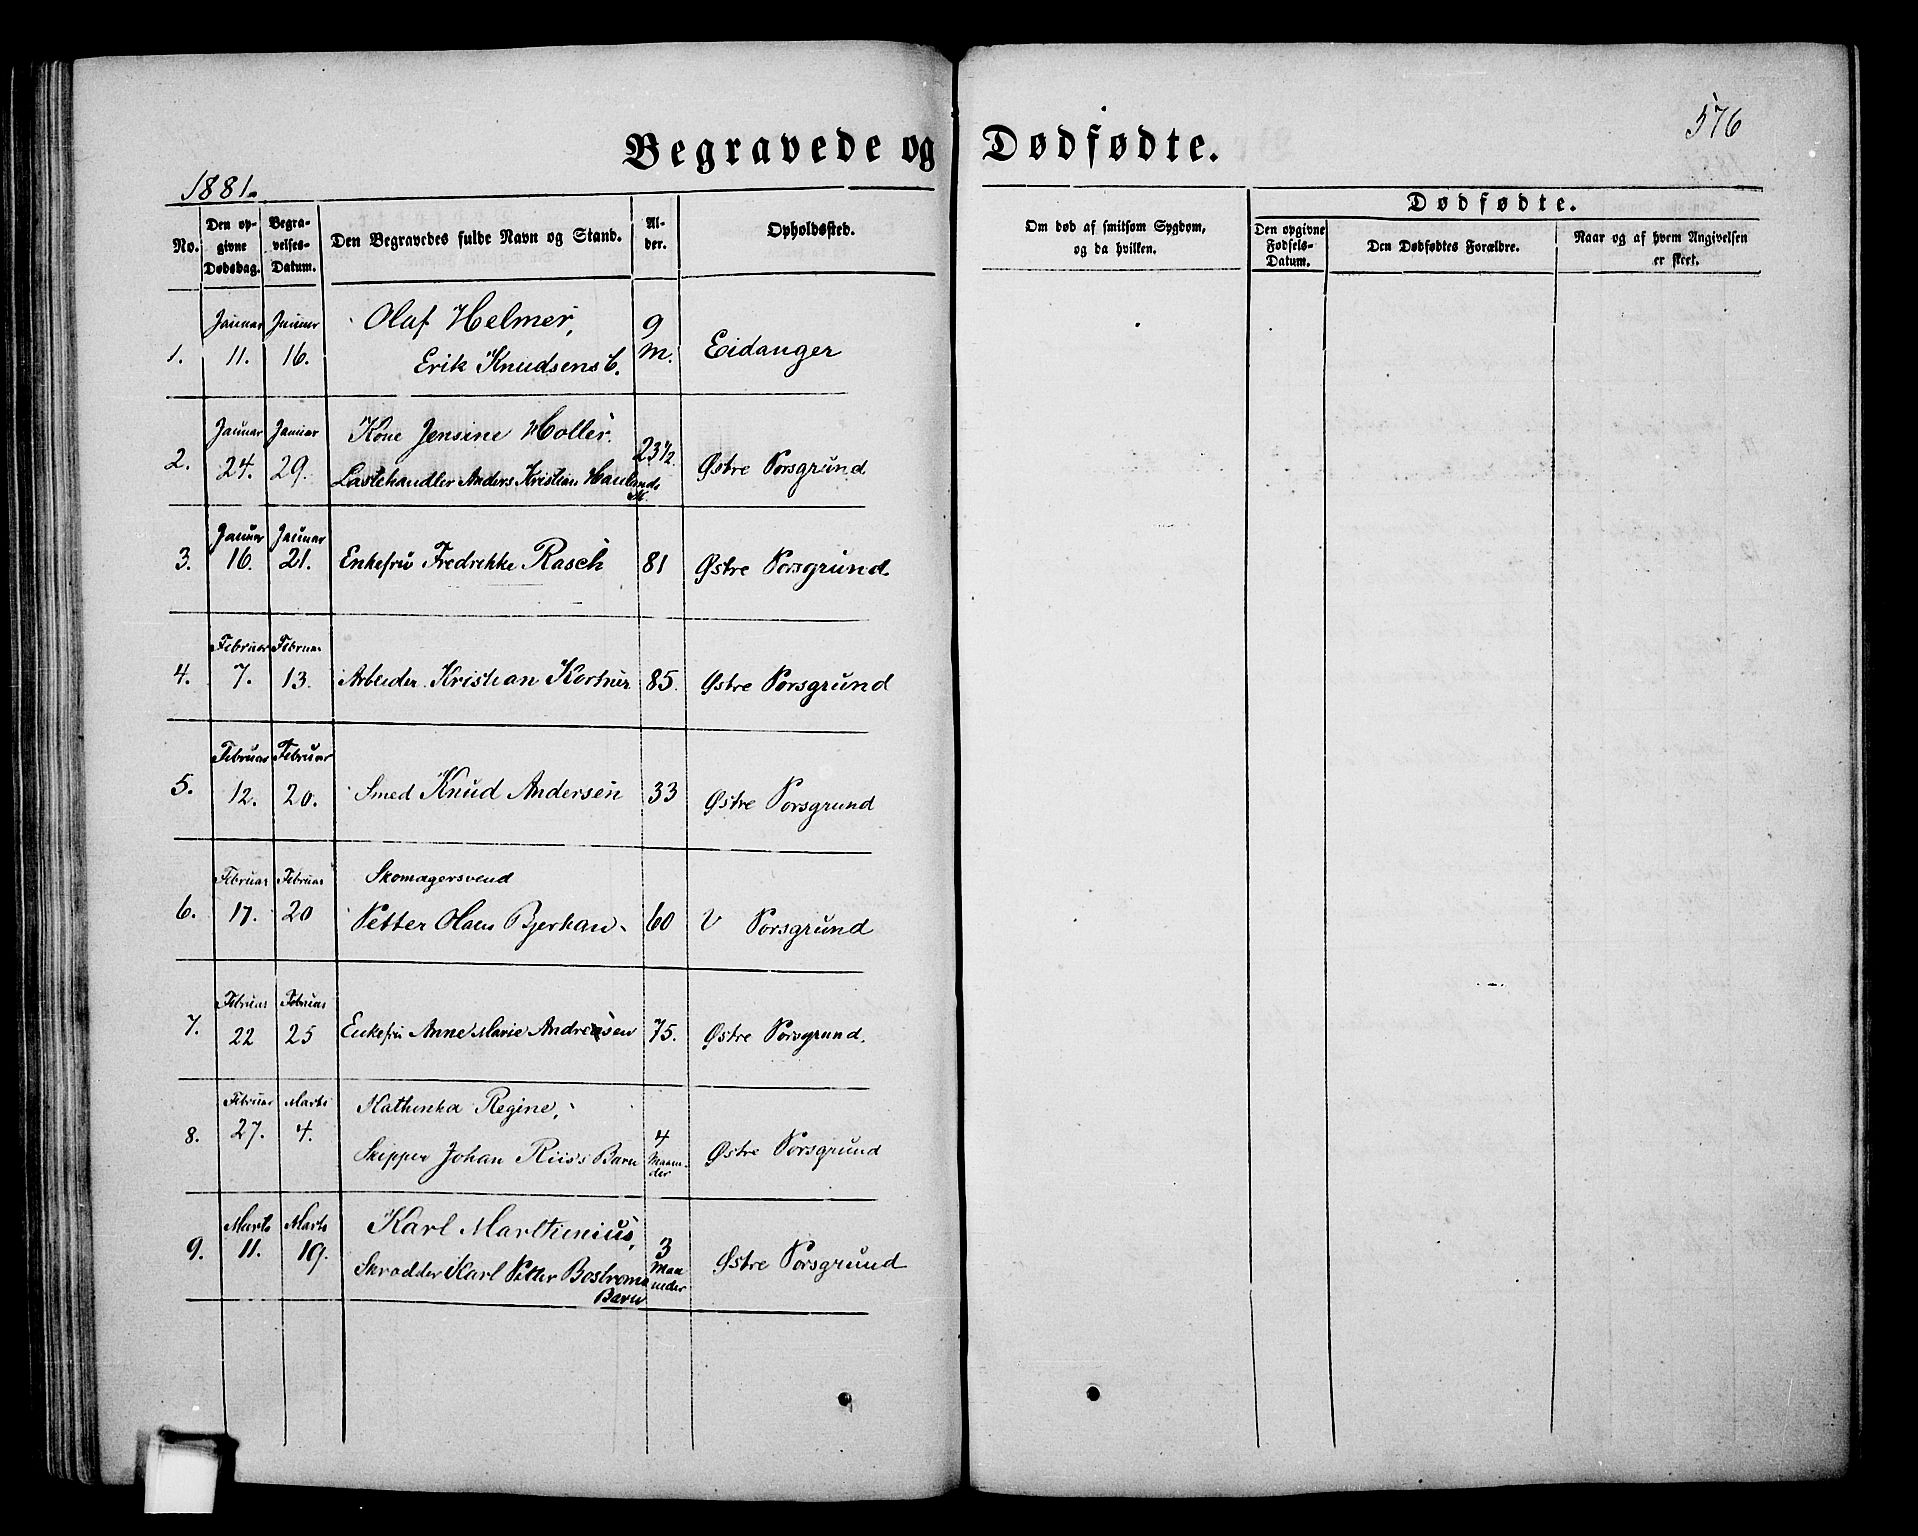 576
Begravede og Dødfødte.
1881.
No.
Den opgivne Dødsdag.
Begravelses-Datum.
Den Begravedes fulde Navn og Stand.
Alder.
Opholdssted.
Om død af smitsom Sygdom, og da hvilken.
Dødfødte.
Den opgivne Fødsels-Datum.
Den Dødfødtes Forældre.
Naar og af hvem Angivelsen er skeet.
Januar Januar Olaf Helmer, 9
1. 11. 16. Erik Knudsens b. M. Eidanger
Januar Januar Kone Jensine Holler. 23½
2. 24. 29. Lastehandler Anders Kristian Haulands K. Østre Porsgrund
Januar Januar
3. 16. 21. Enkefru Fredrikke Rasch 81 Østre Porsgrund
Februar Februar
4. 7. 13. Arbeider Kristian Kortner 85. Østre Porsgrund
Februar Februar
5. 12. 20. Smed Knud Andersen 33 Østre Porsgrund
Februar Februar Skomagersvend
6. 17. 20 Petter Olaus Bjerkan 60 V Porsgrund
Februar Februar
7. 22 25 Enkefru Anne Marie Andreasen 75. Østre Porsgrund.
Februar Marts Mathinka Regine,
8. 27. 4. Skipper Johan Riis's Barn 4 Maaneder Østre Porsgrund
Marts Marts Karl Marthinius,
9. 11. 19. Skrædder Karl Petter Bostrøms Barn 3 Maaneder Østre Porsgrund